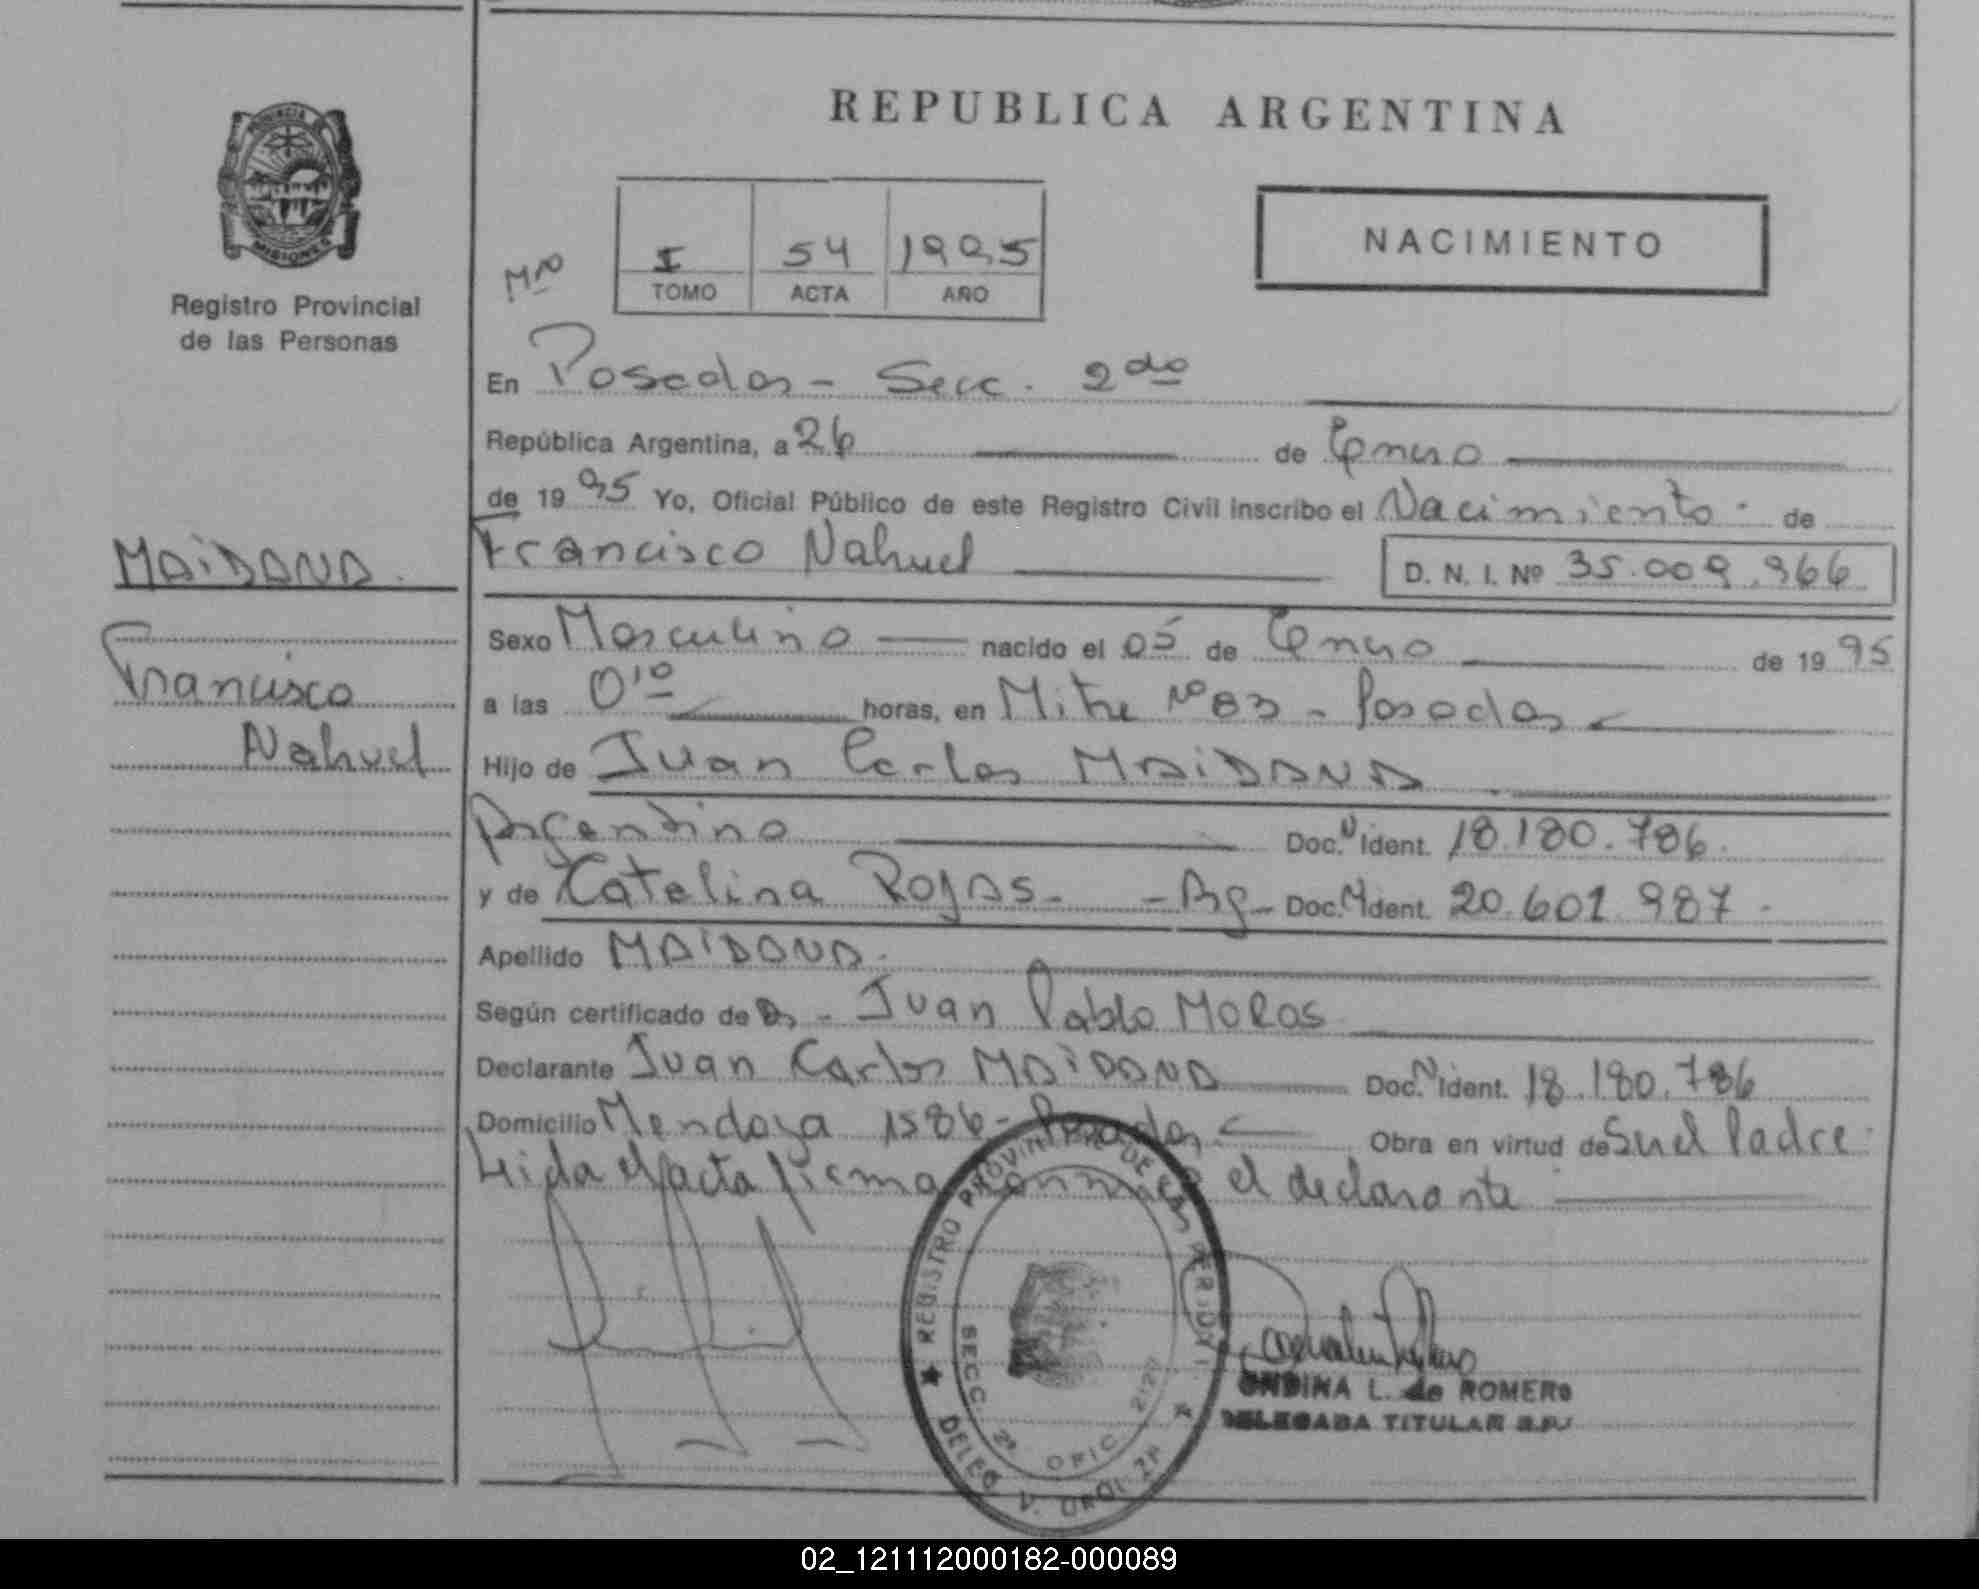 REPUBLICA ARGENTINA
PROVINCIA DE
MISIONES
Registro Provincial
de las Personas
NACIMIENTO
I 54 1995
TOMO ACTA AÑO
En Posadas - Secc. 2da
República Argentina, a 26 de Enero
de 1995 Yo, Oficial Público de este Registro Civil inscribo el Nacimiento de
MAIDANA.
Francisco Nahuel
D. N. I. Nº 35.009.966
Francisco
Nahuel
Sexo Masculino nacido el 05 de Enero de 1995
a las 0,10 horas, en Mitre Nº 83 - Posadas
Hijo de Juan Carlos MAIDANA
Argentino Doc. N Ident. 18.180.786.
y de Catalina Rojas - Arg - Doc. N Ident. 20.601.987 -
Apellido MAIDANA.
Según certificado de Dr - Juan Pablo MORAS
Declarante Juan Carlos MAIDANA Doc. N Ident. 18.180.786
Domicilio Mendoza 1586 - Posadas Obra en virtud de Ser el Padre
Leida el acta firma conmigo el declarante
REGISTRO PROVINCIAL DE LAS PER
SECC. 2ª OFIC.
DELEG V. URQUIZA
ONDINA L. de ROMERO
DELEGADA TITULAR
02_121112000182-000089